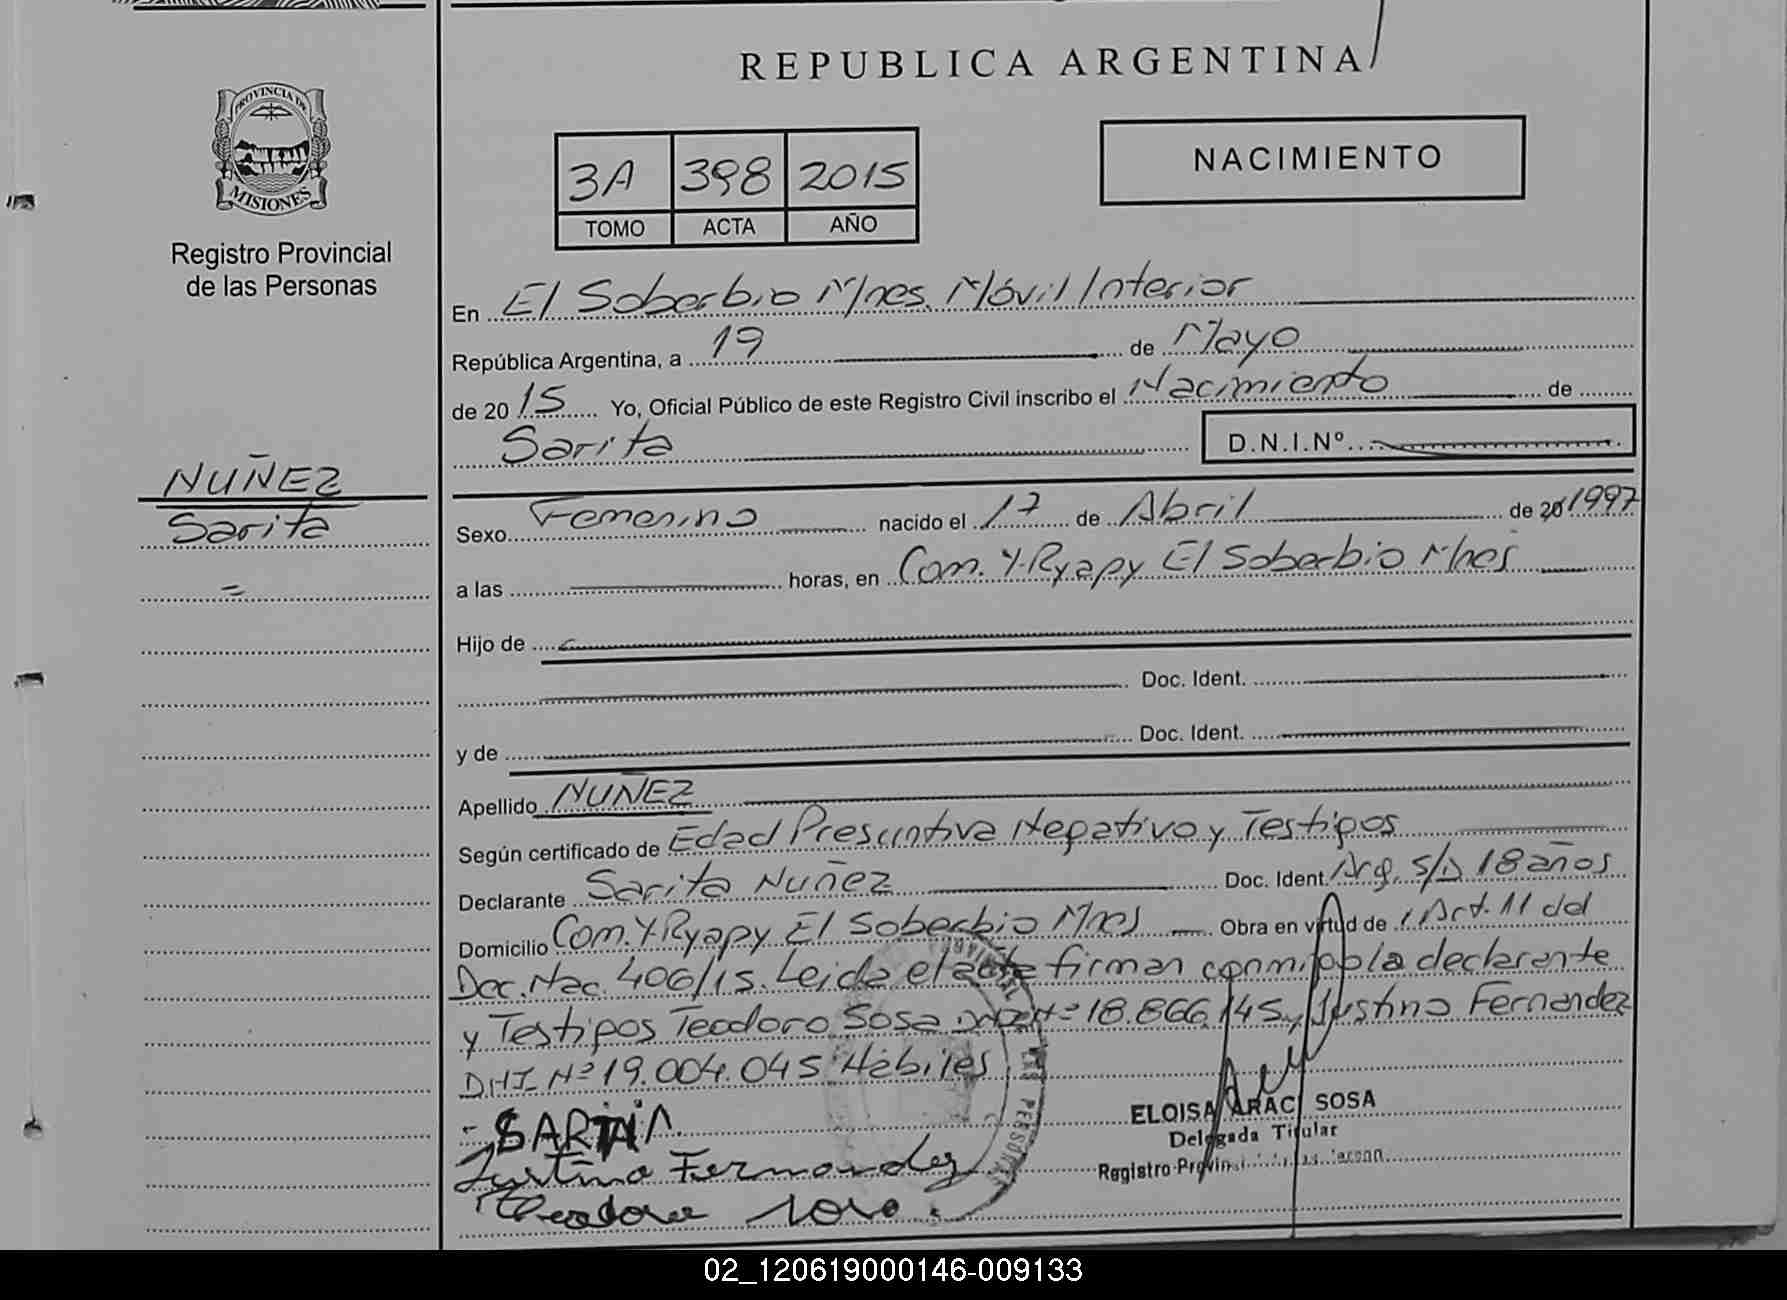 REPUBLICA ARGENTINA
PROVINCIA DE
MISIONES
Registro Provincial
de las Personas
3A 398 2015
TOMO ACTA AÑO
NACIMIENTO
En El Soberbio Mnes. Móvil Interior
República Argentina, a 19 de Mayo
de 2015 Yo, Oficial Público de este Registro Civil inscribo el Nacimiento de
Sarita D.N.I.Nº
NUÑEZ
Sarita
=
Sexo Femenino nacido el 17 de Abril de 20 1997
a las horas, en Com. Y-Ryapy El Soberbio Mnes
Hijo de
Doc. Ident.
y de Doc. Ident.
Apellido NUÑEZ
Según certificado de Edad Presuntiva Negativo y Testigos
Declarante Sarita Nuñez Doc. Ident. Arg. s/D 18 años
Domicilio Com. Y Ryapy El Soberbio Mnes Obra en virtud de Art. 11 del
Dec. Nac. 406/15. Leida el acta firman conmigo la declarante
y Testigos Teodoro Sosa Nº 18.866.145 y Justino Fernandez
DNI Nº 19.004.045 Hábiles
SARITA
Justino Fernandez
ELOISA ARACI SOSA
Delegada Titular
Registro
02_120619000146-009133